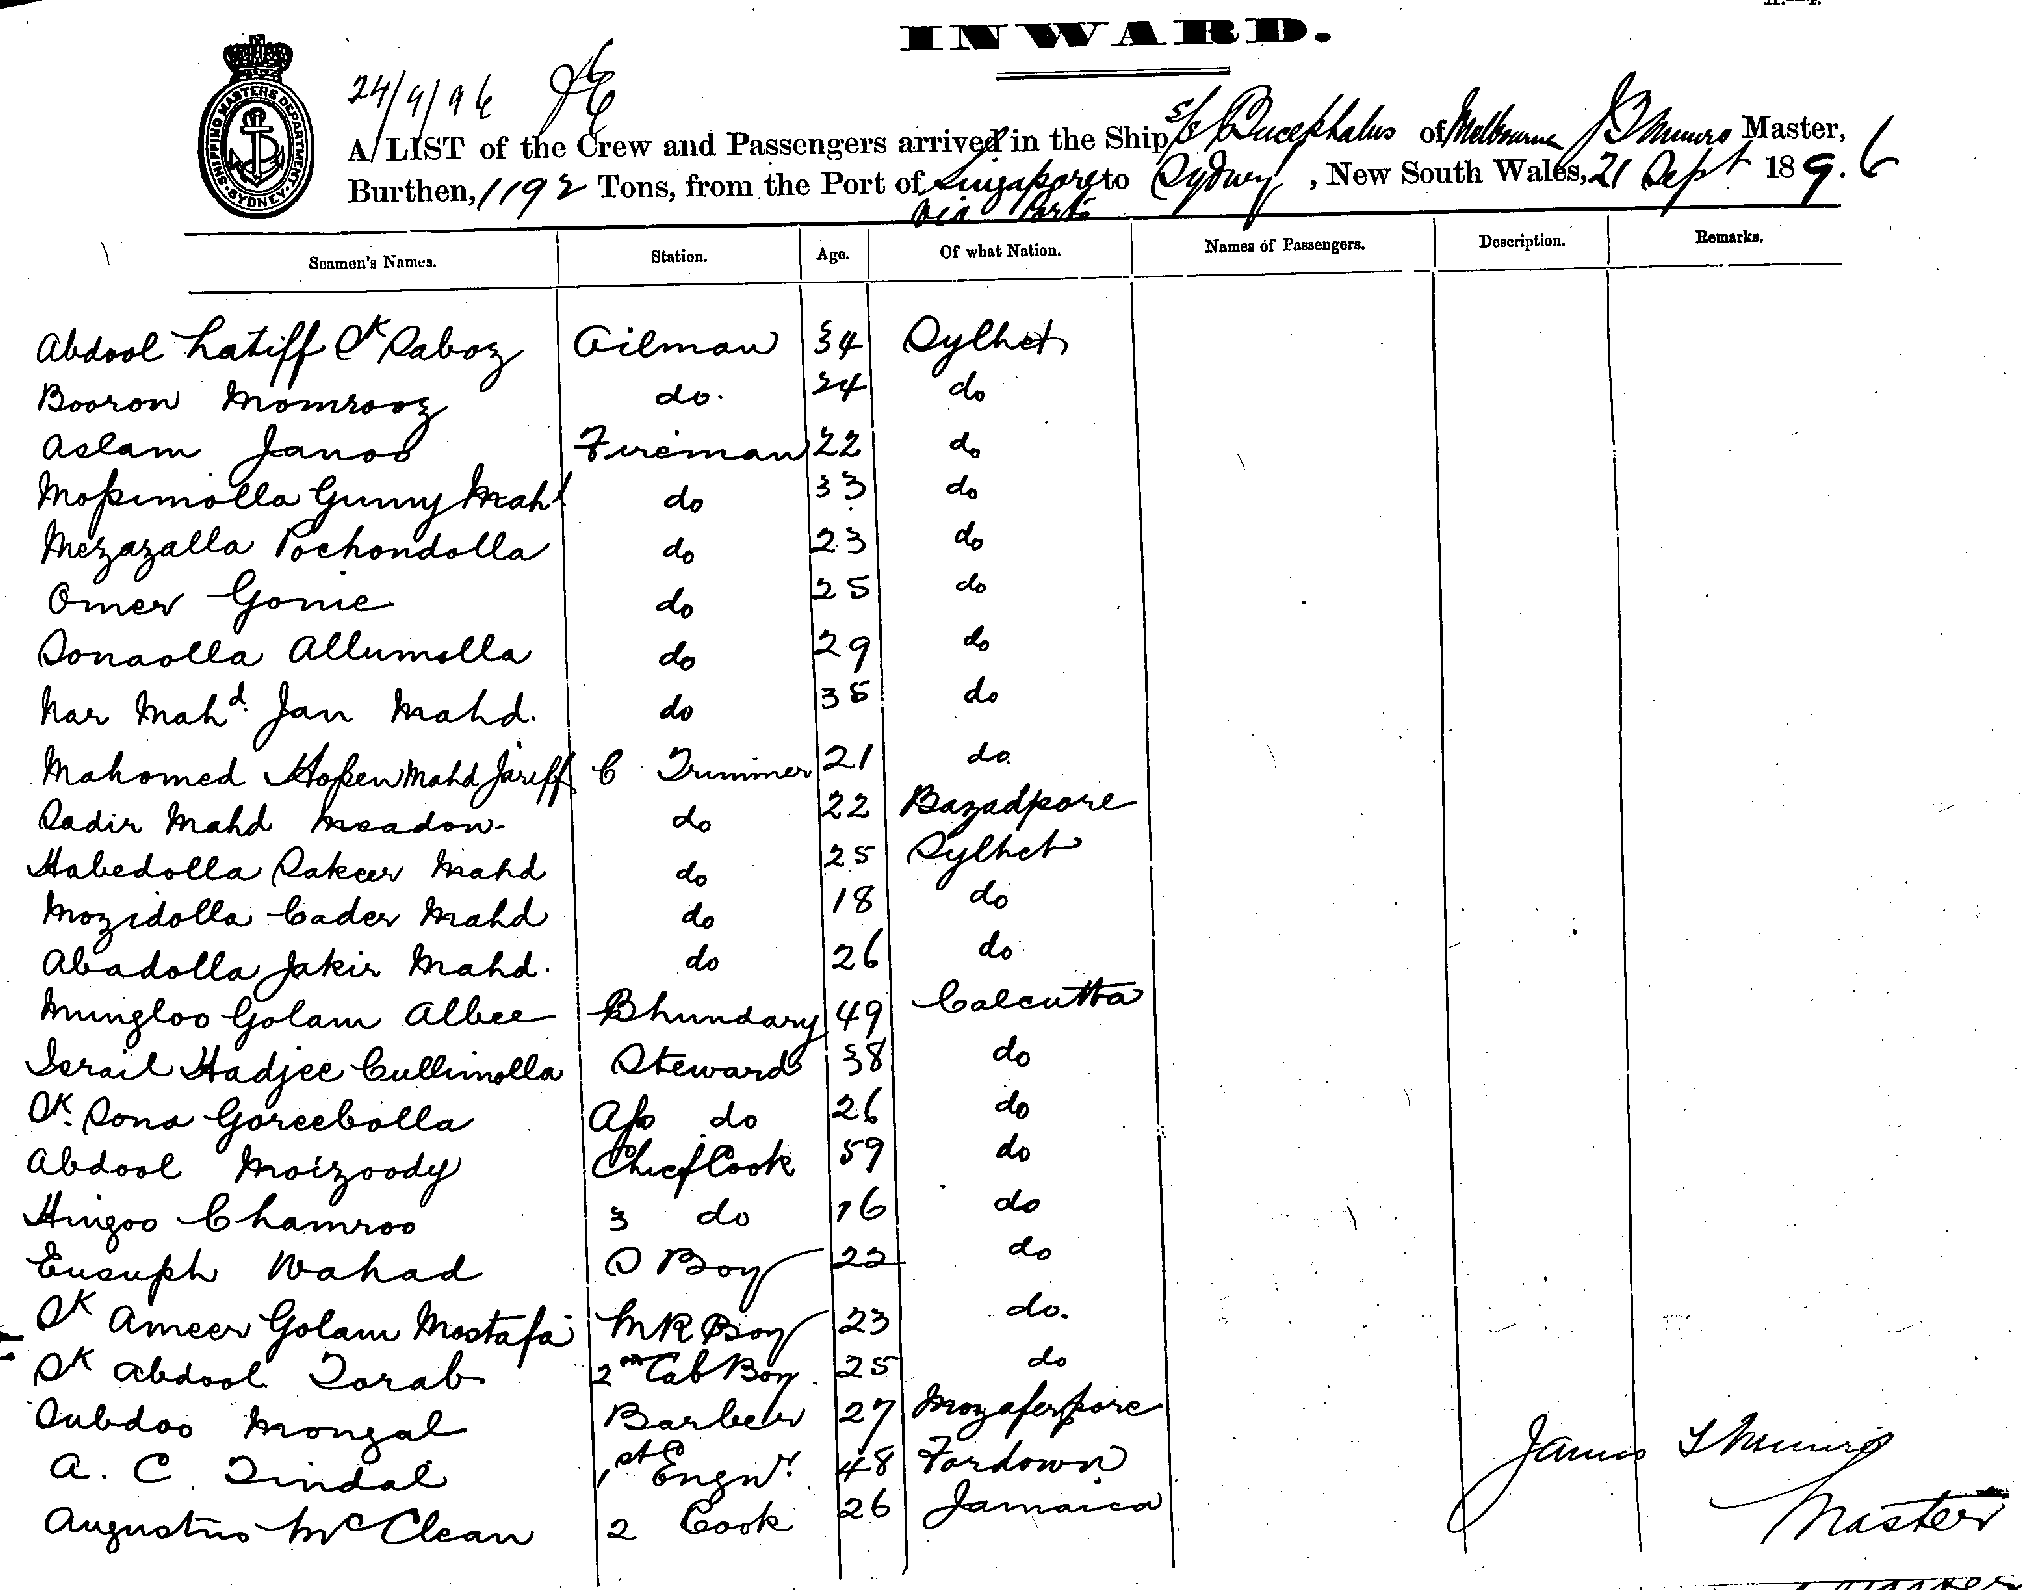 INWARD.
24/9/96
SHIPPING MASTERS DEPARTMENT SYDNEY
A LIST of the Crew and Passengers arrived in the Ship S/S Bucephalus of Melbourne J S Munro Master,
Burthen, 1192 Tons, from the Port of Singapore to Sydney, New South Wales, 21 Sept 1896
via Ports
Seamen's Names. Station. Age. Of what Nation. Names of Passengers. Description. Remarks.
Abdool Latiff Sk Saboz Oilman 34 Sylhet
Booron Momrooz do. 34 do
Aslam Janoo Fireman 22 do
Mossimolla Gunny Mahd do 33 do
Mezazalla Pochondolla do 23 do
Omer Gonie do 25 do
Sonaolla Allumolla do 29 do
Nar Mahd. Jan Mahd. do 35 do
Mahomed Hossen Mahd Jariff C Trimmer 21 do
Sadir Mahd Meadon do 22 Bazadpore
Habedolla Sakeer Mahd do 25 Sylhet
Mozidolla Cader Mahd do 18 do
Abadolla Jakir Mahd. do 26 do
Mungloo Golam Albee Bhundary 49 Calcutta
Israil Hadjee Cullimolla Steward 38 do
Sk. Sona Goreebolla Ass do 26 do
Abdool Moizoody Chief Cook 59 do
Hingoo Chamroo 3 do 16 do
Eusuph Wahad S Boy 22 do
Sk Ameer Golam Mostafa M R Boy 23 do.
Sk Abdool Torab 2nd Cab Boy 25 do
Subdoo Mongal Barber 27 Mozaferpore
A. C. Tindal 1st Engnr. 48 Fordown
Augustus McClean 2 Cook 26 Jamaica
James S Munro
Master